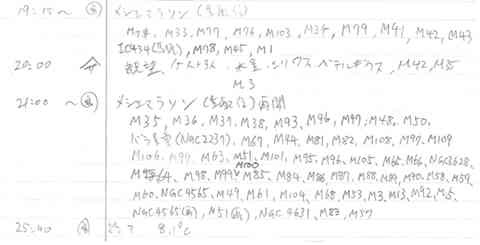 19:15～ メシエマラソン
M33, M77, M76, M103, M34, M79, M41, M42, M43
IC434, M78, M45, M1
20:00 観望 シリウス ベテルギウス M42, M35
M3
21:00 ～ メシエマラソン 再開
M35, M36, M37, M38, M93, M46, M47, M48, M50,
バラ星雲 (NGC2237), M67, M44, M81, M82, M108, M97, M109
M106, M94, M63, M51, M101, M95, M96, M105, M65, M66, NGC3628,
M100
M98, M99, M85, M84, M86, M87, M88, M89, M90, M58, M59,
M60, NGC4565, M49, M61, M104, M68, M53, M3, M13, M92, M5,
NGC4565, M51, NGC4631, M83, M57
25:40 終了 8.1℃